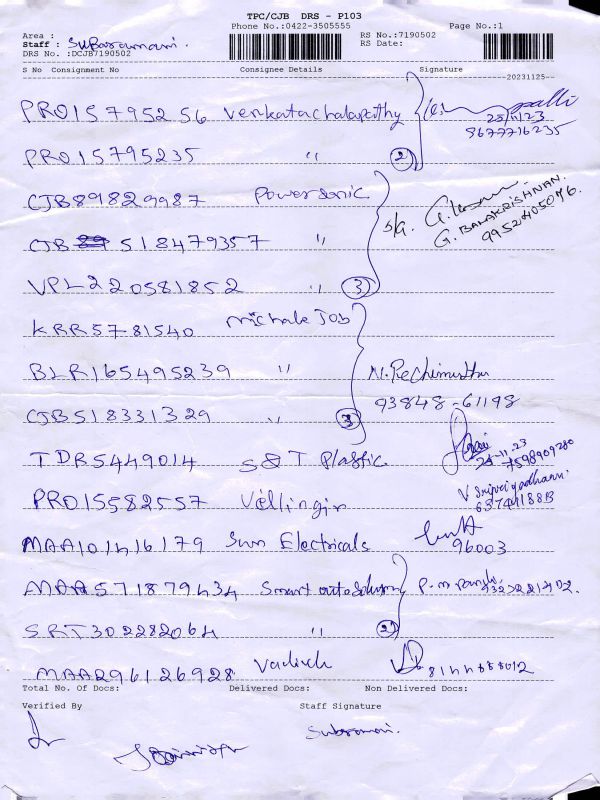 TPC/CJB DRS - P103
Phone No.:0422-3505555 Page No.:1
Area : RS No.:7190502
Staff : Subramani. RS Date:
DRS No. :DCJB7190502
S No Consignment No Consignee Details Signature
20231125
PRO15795256 Venkatachalapathy
25/11/23
9677716235
PRO15795235 " 2
CJB89829987 Powersonic
G. BALAKRISHNAN.
9952405076.
CJB 518479357 "
VPL220581852 " 3
KRR5781540 Michale Job
BLR165495239 "
93848-61198
CJB518331329 " 3
25-11-23
7598909280
TDR5449014 S&T Plastic
PRO15582557 Vellingir
MAA101416179 Sun Electricals
96003
MAA571879434 Smart auto Solution
SRT302282064 " 2
MAA296126928
Total No. Of Docs: Delivered Docs: Non Delivered Docs:
Verified By Staff Signature
Subramani.